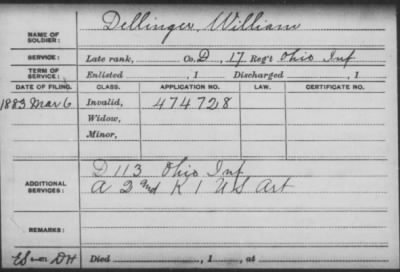 NAME OF SOLDIER: Dellinger, William
SERVICE: Late rank, Co. D, 17 Reg't Ohio Inf
TERM OF SERVICE: Enlisted , 1 Discharged , 1
DATE OF FILING. CLASS. APPLICATION NO. LAW. CERTIFICATE NO.
1883 Mar 6 Invalid, 474728
Widow,
Minor,
D 113 Ohio Inf
ADDITIONAL SERVICES: A 2nd K 1 US Art
REMARKS:
Died , 1 , at